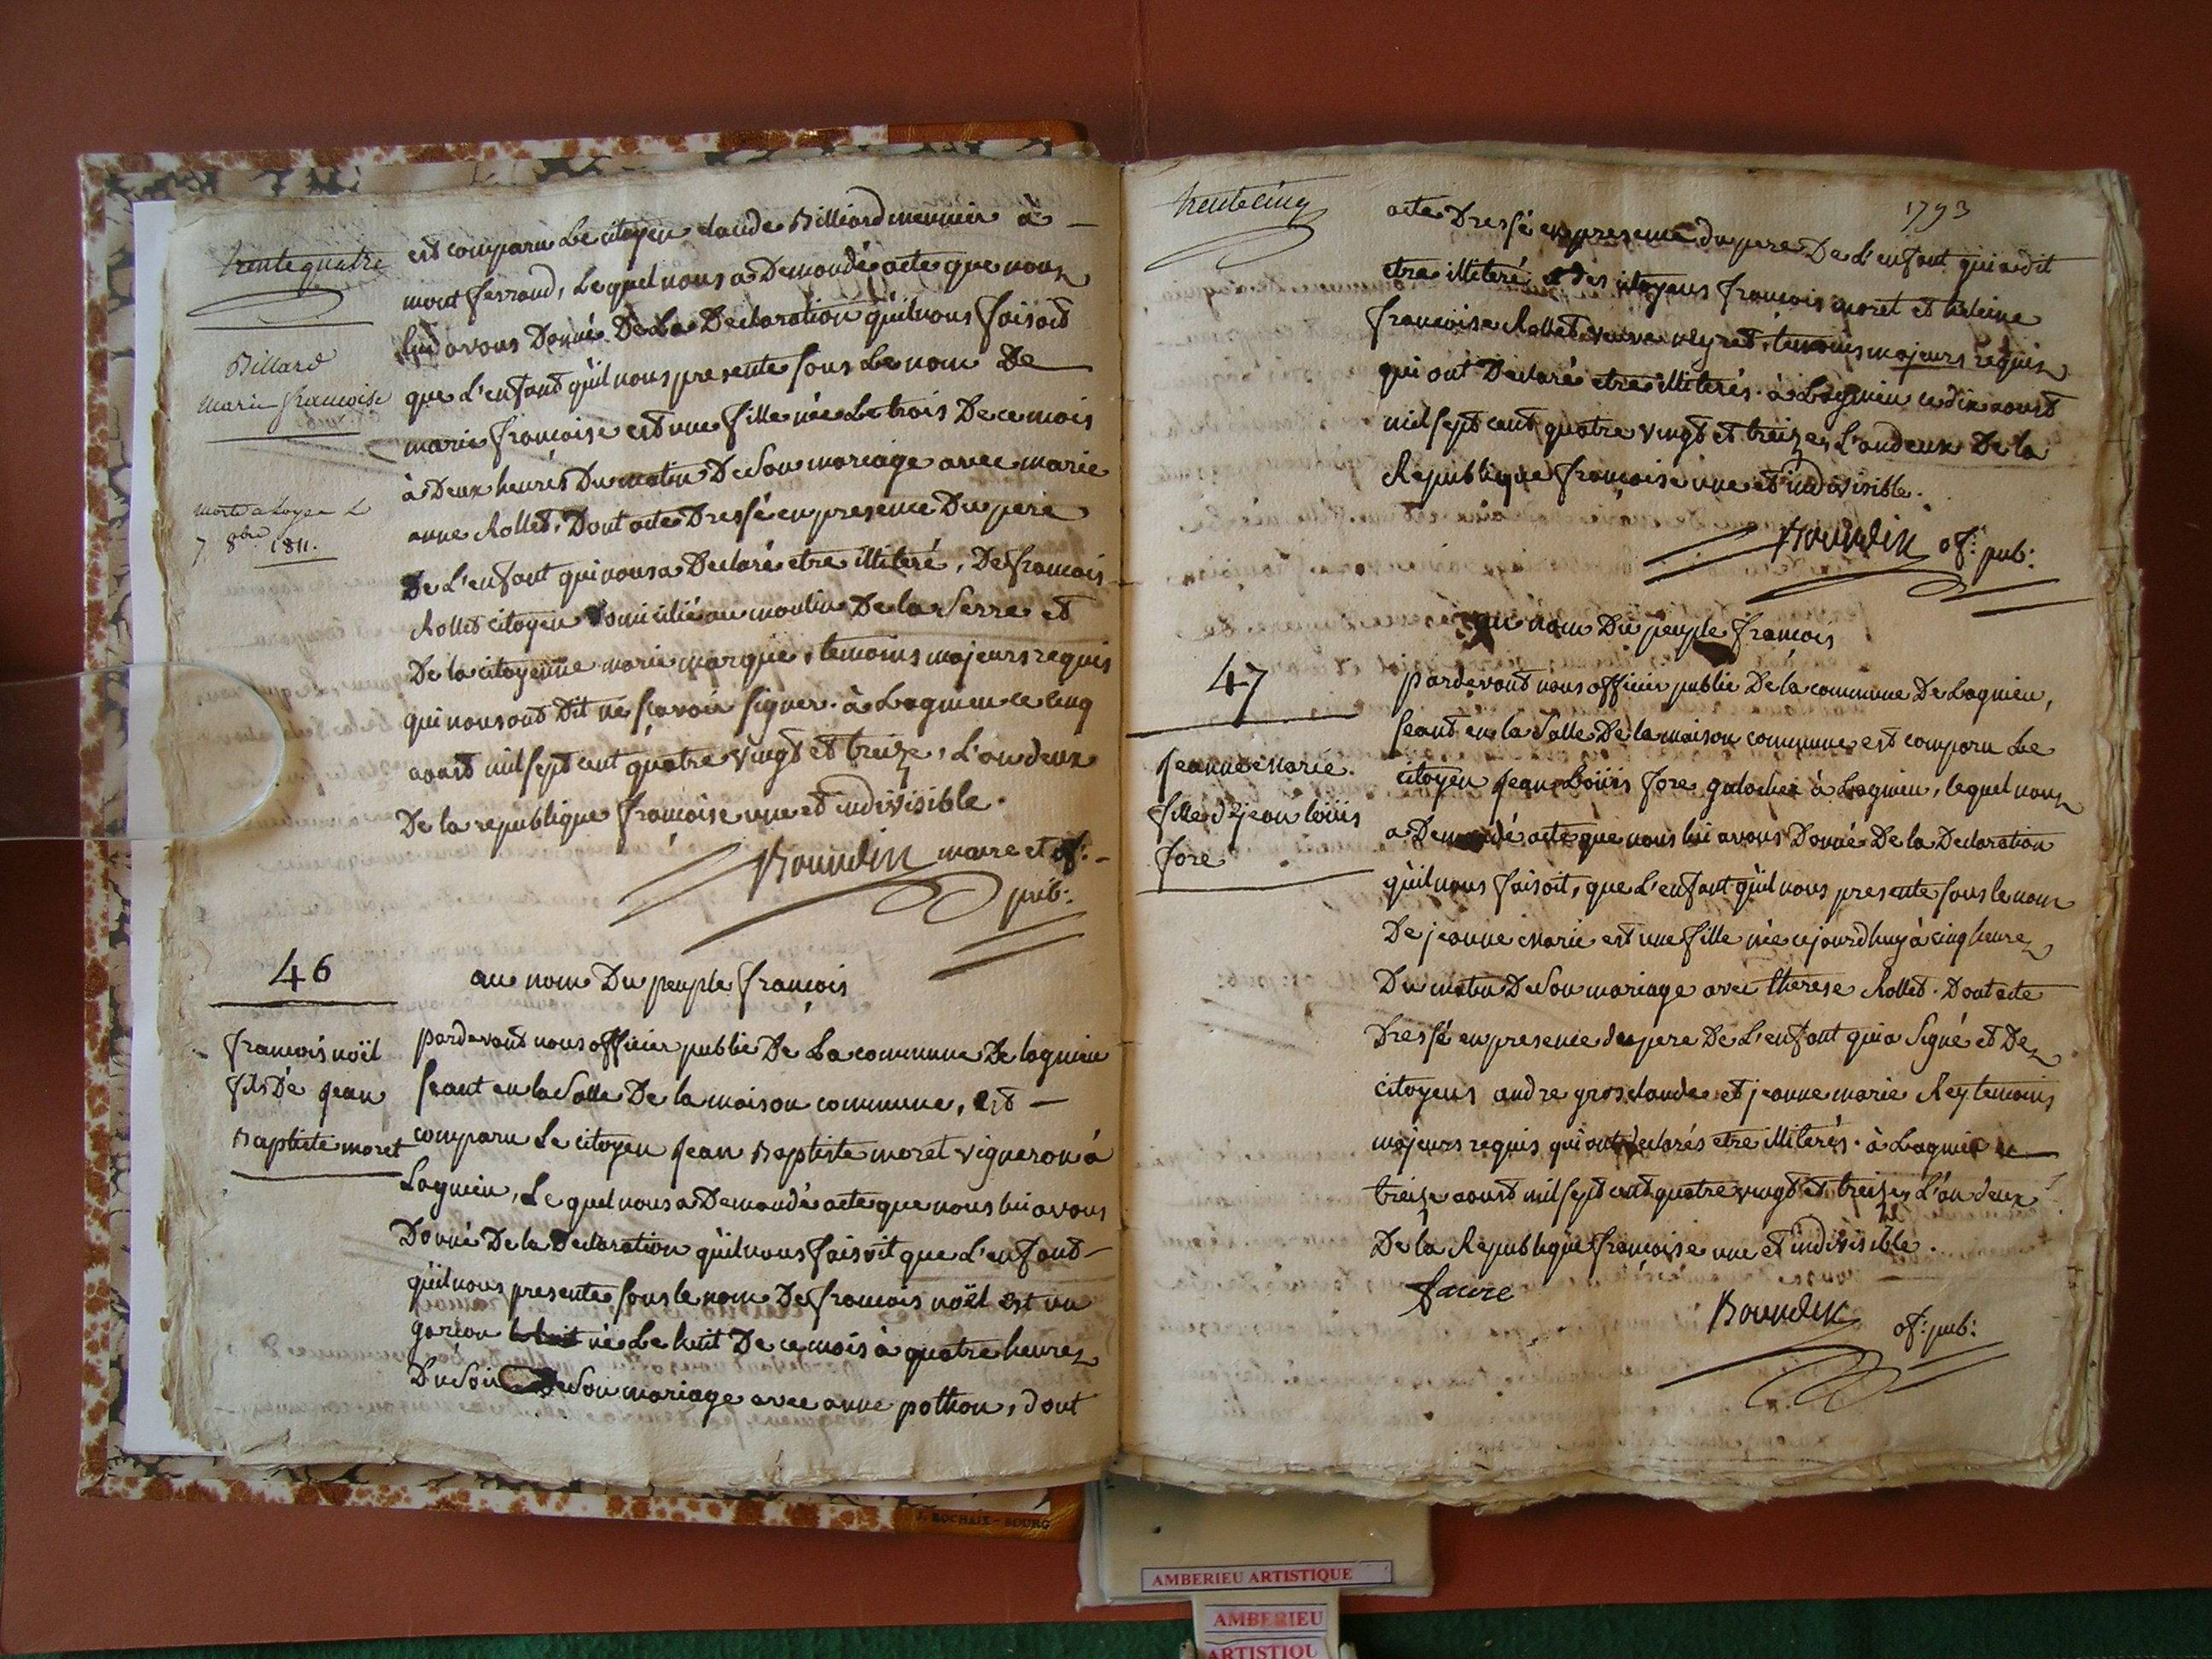 trente quatre
Billard
marie francoise
morte a Loyes le
7 8bre 1811.
est comparu Le citoyen claude Billiard meunier à
mont ferrand, Lequel nous a Demandé acte que nous
lui avons Donné De La Declaration qu'il nous faisoit
que L'enfant qu'il nous presente sous Le nom De
marie francoise est une fille née Le trois De ce mois
à Deux heures Du matin De Son mariage avec marie
anne Rollet, Dont acte Dressé en presence Du pere
De L'enfant qui nous a Declaré etre illiteré, De francois
Rollet citoyen Domicilié au moulin De la Serre et
De la citoyenne marie marque, temoins majeurs requis
qui nous ont Dit ne sçavoir signer. à Lagnieu ce cinq
aoust mil sept cent quatre vingt et treize, L'an deux
De la republique françoise une et indivisible.
Bourdin maire et of:
pub:
46
au nom Du peuple françois
francois noël
fils De jean
Baptiste moret
pardevant nous officier public De La commune De lagnieu
seant en la Salle De la maison commune, est
comparu Le citoyen jean Baptiste moret vigneron à
Lagnieu, Le quel nous a Demandé acte que nous lui avons
Donné De la Declaration qu'il nous faisoit que L'enfant
qu'il nous presente sous le nom De francois noël est un
garcon né Le huit De ce mois à quatre heures
Du Soir De Son mariage avec anne pothon, dont
trente cinq
1793
acte Dressé en presence du pere De L'enfant qui a dit
etre illiteré et des citoyens françois moret et heleine
francoise Rollet veuve neyret, temoins majeurs requis
qui ont Declaré etre illiterés. à Lagnieu ce dix aoust
mil sept cent quatre vingt et treize, L'an deux De la
Republique françoise une et indivisible.
Bourdin of: pub:
au nom Du peuple françois
47
jeanne Marie
fille de jean loüis
fore
pardevant nous officier public De la commune De Lagnieu,
seant en la Salle De la maison commune est comparu Le
citoyen jean Loüis fore galochier à Lagnieu, lequel nous
a Demandé acte que nous lui avons Donné De la Declaration
qu'il nous faisoit, que L'enfant qu'il nous presente sous le nom
De jeanne Marie est une fille née cejourdhuy à cinq heures
Du matin De Son mariage avec therese Rollet. Dont acte
Dressé en presence du pere De L'enfant qui a Signé et Des
citoyens andre grosclaude et jeanne marie Rey temoins
majeurs requis qui ont declarés etre illiterés. à Lagnieu ce
treize aoust mil sept cent quatre vingt et treize, L'an deux
De la Republique françoise une et indivisible.
faure
Bourdin of: pub:
J. ROCHAIX - BOURG
AMBERIEU ARTISTIQUE
AMBERIEU
ARTISTIQU